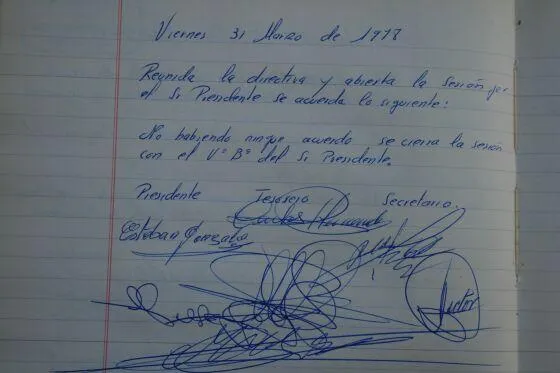 Viernes 31 Marzo de 1978
Reunida la directiva y abierta la sesión por
el Sr Presidente se acuerda lo siguiente:
No habiendo ningun acuerdo se cierra la sesión
con el Vº Bº del Sr Presidente.
Presidente Tesorero Secretario.
Esteban Gonzalo
Hector